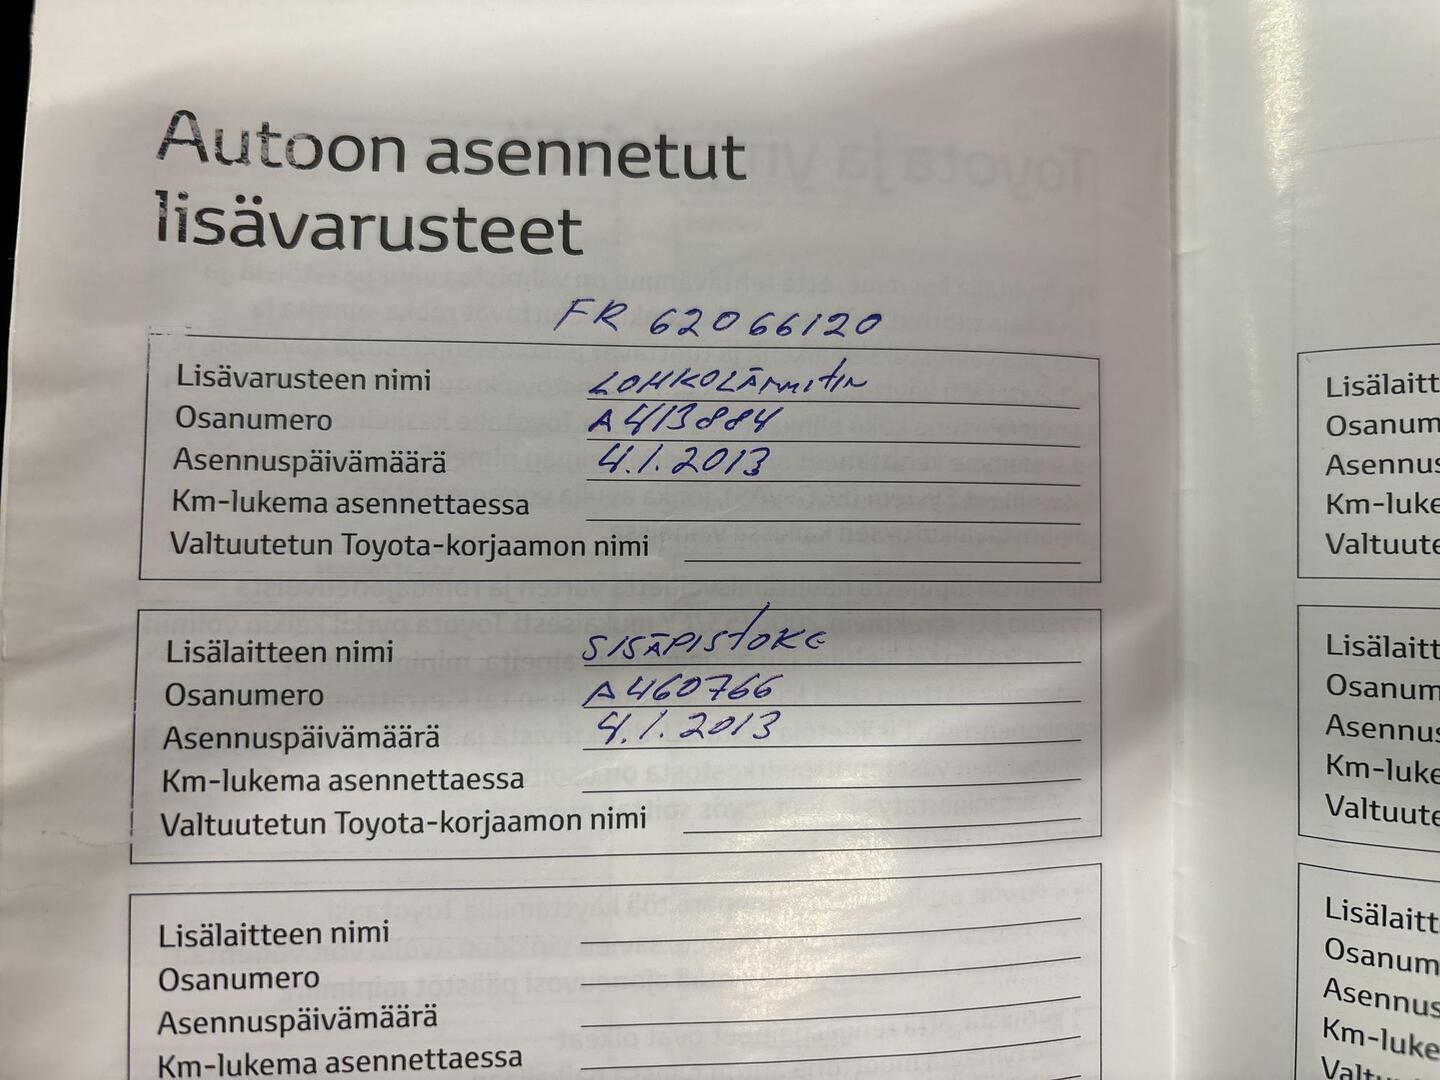 Autoon asennetut
lisävarusteet
FR 62066120
Lisävarusteen nimi LOHKOLÄMMITIN
Osanumero A413884
Asennuspäivämäärä 4.1.2013
Km-lukema asennettaessa
Valtuutetun Toyota-korjaamon nimi
Lisälaitteen nimi SISÄPISTOKE
Osanumero A460766
Asennuspäivämäärä 4.1.2013
Km-lukema asennettaessa
Valtuutetun Toyota-korjaamon nimi
Lisälaitteen nimi
Osanumero
Asennuspäivämäärä
Km-lukema asennettaessa
Lisälaitt
Osanum
Asennus
Km-luke
Valtuute
Lisälaitt
Osanum
Asennus
Km-luke
Valtuute
Lisälaitt
Osanum
Asennus
Km-luke